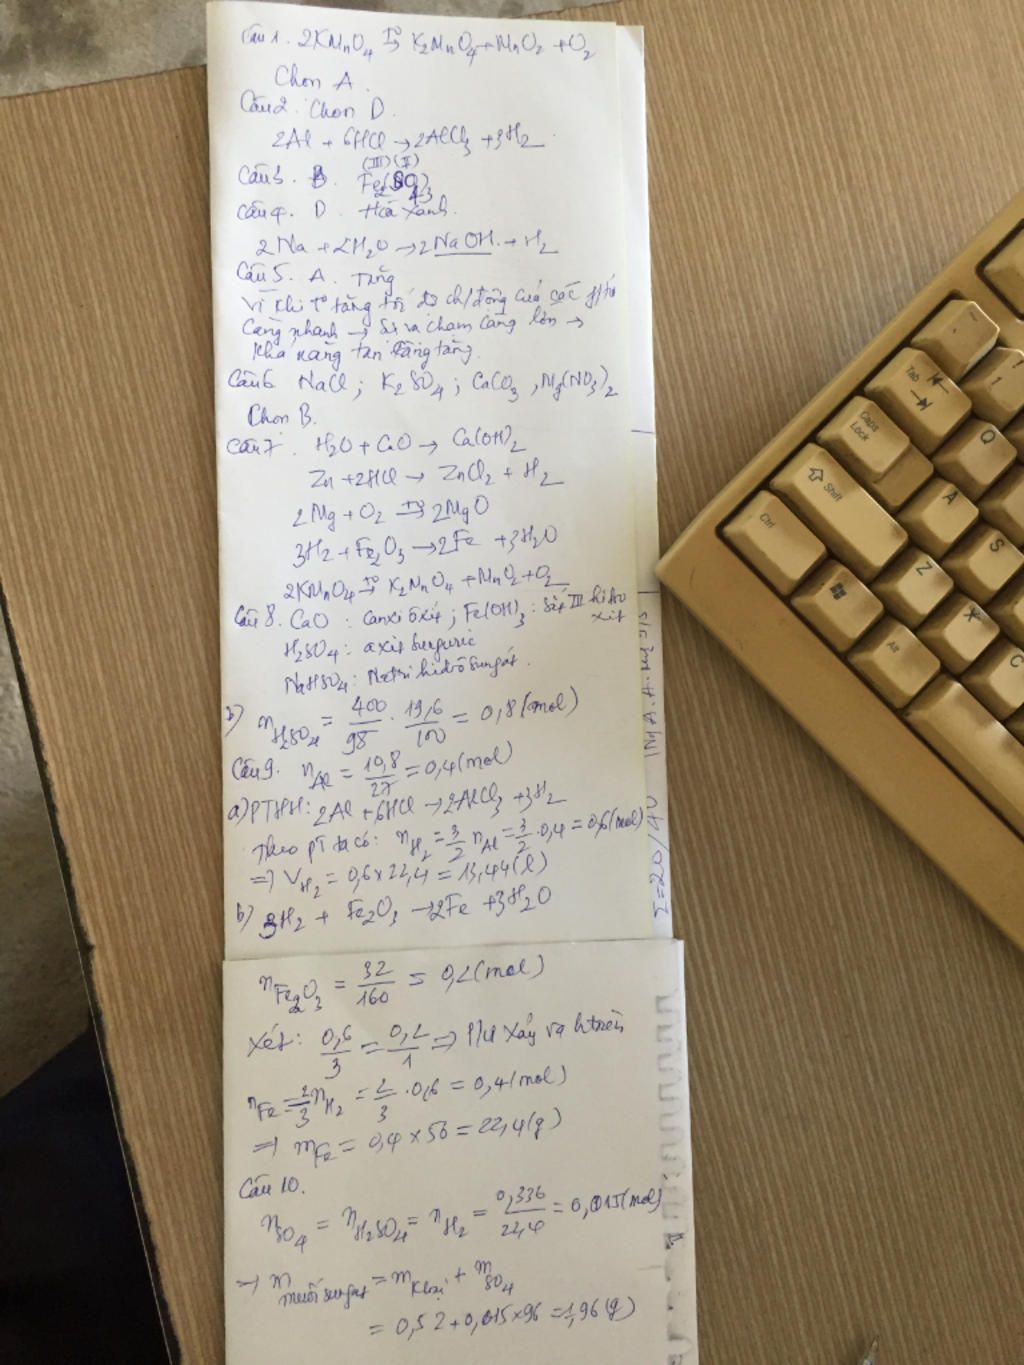 Câu 1. 2KMnO4 t°→ K2MnO4 + MnO2 + O2
Chọn A.
Câu 2. Chọn D.
2Al + 6HCl → 2AlCl3 + 3H2
(III) (II)
Câu 3. B. Fe2(SO4)3
Câu 4. D. Hóa xanh.
2Na + 2H2O → 2NaOH + H2
Câu 5. A. Tăng
Vì khi t° tăng tốc độ ch/động của các p/tử
Càng nhanh → Sự va chạm càng lớn →
Khả năng tan càng tăng.
Câu 6. NaCl ; K2SO4 ; CaCO3 , Mg(NO3)2
Chọn B.
Câu 7. H2O + CaO → Ca(OH)2
Zn + 2HCl → ZnCl2 + H2
2Mg + O2 t°→ 2MgO
3H2 + Fe2O3 → 2Fe + 3H2O
2KMnO4 t°→ K2MnO4 + MnO2 + O2
Câu 8. CaO : Canxi ôxit ; Fe(OH)3 : Sắt III hiđro
xit
H2SO4 : axit sunfuric
NaHSO4 : Natri hiđrô sunfat.
b) nH2SO4 = 400/98 . 19,6/100 = 0,8 (mol)
Câu 9. nAl = 10,8/27 = 0,4 (mol)
a) PTHH: 2Al + 6HCl → 2AlCl3 + 3H2
Theo pt ta có: nH2 = 3/2 nAl = 3/2 . 0,4 = 0,6 (mol)
=> VH2 = 0,6 x 22,4 = 13,44 (l)
b) 3H2 + Fe2O3 → 2Fe + 3H2O
nFe2O3 = 32/160 = 0,2 (mol)
Xét: 0,6/3 = 0,2/1 => P/Ư xảy ra h toàn
nFe = 2/3 nH2 = 2/3 . 0,6 = 0,4 (mol)
=> mFe = 0,4 x 56 = 22,4 (g)
Câu 10.
nSO4 = nH2SO4 = nH2 = 0,336/22,4 = 0,015 (mol)
=> m muối sunfat = m Kloại + m SO4
= 0,52 + 0,015 x 96 = 1,96 (g)
Σ = 20/40
Tab
1
Caps Lock
Q
Shift
A
Ctrl
Z
S
X
Alt
C